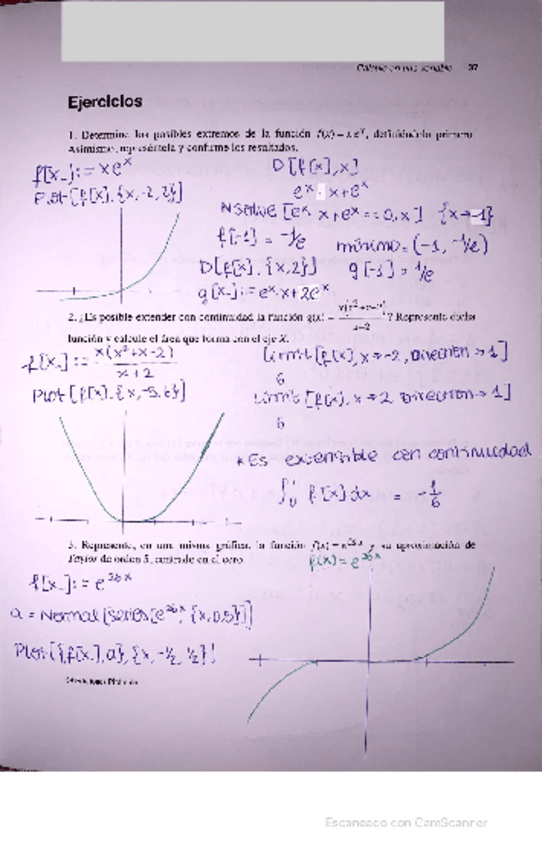 Cálculo en una variable 37
Ejercicios
1. Determine los posibles extremos de la función f(x) = x e^x, definiéndola primero
Asimismo, represéntela y confirme los resultados.
f[x_]:= x e^x
D[f[x],x]
Plot[f[x],{x,-2,2}]
e^x · x+e^x
NSolve[e^x x+e^x==0,x] {x→-1}
f[-1] = -1/e
mínimo=(-1,-1/e)
D[f[x],{x,2}] g[-1]=1/e
g[x_]:=e^x·x+2e^x
2. ¿Es posible extender con continuidad la función g(x) = ? Represente dicha
función y calcule el área que forma con el eje X.
f[x_]:= x(x²+x-2)/x+2
Limit[f[x],x→-2,Direction→1]
6
Plot[f[x],{x,-5,6}]
Limit[f[x],x→2 Direction→1]
6
*Es extensible con continuidad
∫₀¹ f[x]dx = -1/6
3. Represente, en una misma gráfica, la función y su aproximación de
Taylor de orden 5, centrado en el cero.
f[x_]:= e
a = Normal[Series[e, {x,0,5}]]
Plot[{f[x],a},{x,-½,½}]
Escaneado con CamScanner